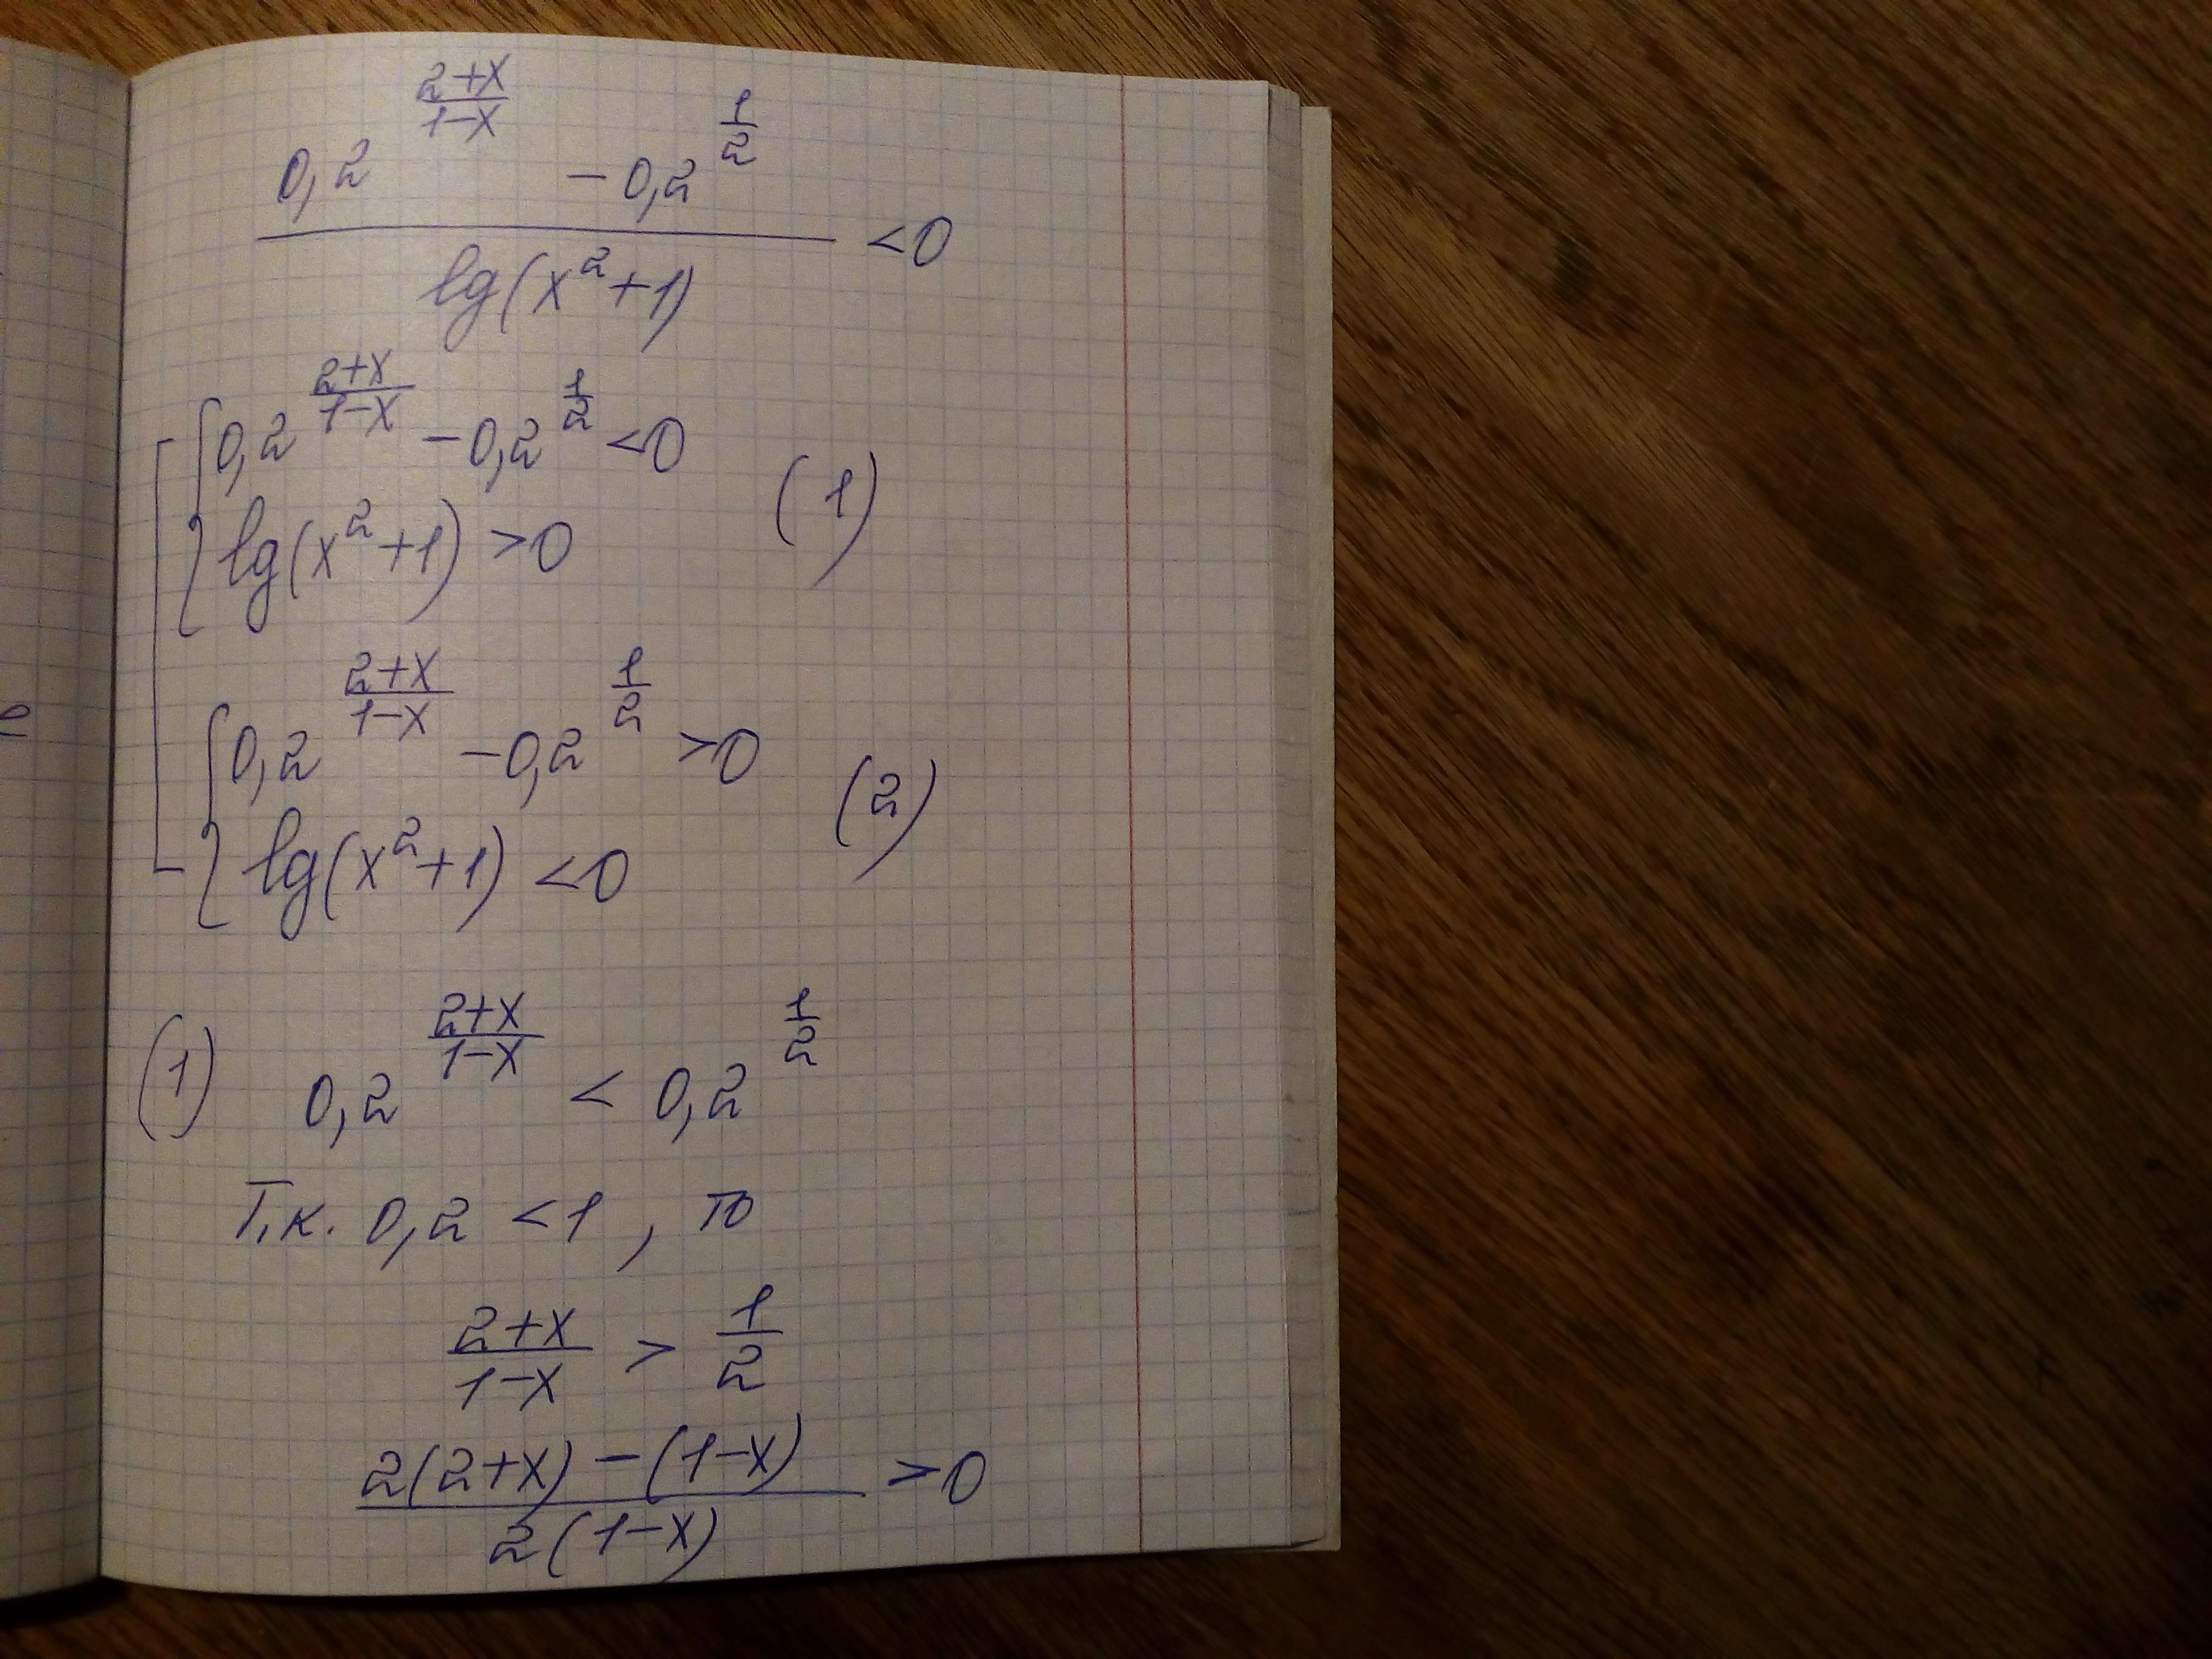 (0,2^((2+x)/(1-x)) - 0,2^(1/2)) / lg(x²+1) < 0
0,2^((2+x)/(1-x)) - 0,2^(1/2) < 0
(1)
lg(x²+1) > 0
0,2^((2+x)/(1-x)) - 0,2^(1/2) > 0
(2)
lg(x²+1) < 0
(1) 0,2^((2+x)/(1-x)) < 0,2^(1/2)
Т.к. 0,2 < 1, то
(2+x)/(1-x) > 1/2
(2(2+x) - (1-x)) / (2(1-x)) > 0